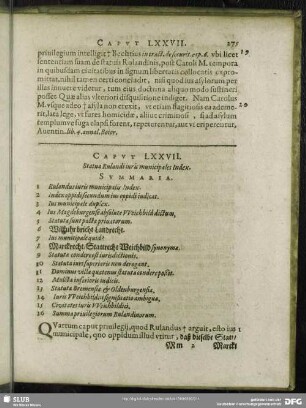 CAPVT LXXVII. 275
privilegium intelligit? Scotticis in tract. de jurerit. cap. 6. vbi licet 19
sententiam suam de statuis Rulandinis, post Caroli M. tempora
in quibusdam civitatibus in signum libertatis collocatis expro-
mitut, nihil tamen certi concludit, nisi quod ius asylorum per
illas innuere videtur, tum eius doctrina aliquo modo subsisteret
posset. Quæ alias vlteriori disquisitione indiget. Nam Carolus
M. vsque adeo asyla non erexit, vt etiam flagitiosa ea aderet 20
lata lege, vt fures homicidæ, aliive criminosi, si ad asylum
templumve fuga elapsi forent, repeterentur, aut vi eriperentur,
Auentin. lib. 4. annal. Boior.
CAPVT LXXVII.
Statua Rulandi iuris municipalis Index.
SVMMARIA.
1 Rulandus iuris municipalis Index.
2 Index oppidi sicuti cum ius oppidi indicat.
3 Ius municipale duplex.
4 Ius Magdeburgense absolute Weichbild dictum,
5 Statuta sunt pacta privatorum.
6 Willkuhr bricht Landrecht.
7 Ius municipale quid?
8 Marcktrecht. Stattrecht Weichbild synonyma.
9 Statuta condere est iurisdictionis.
10 Statuta iuri superioris non derogant.
11 Dominus villæ quatenus statuta condere posset.
12 Mulcta inferioris iudicis.
13 Statuta Bremensia & Oldenburgensia.
14 Iuris Weichbildici significatio ambigua,
15 Creatores iuris Weichbildici,
16 Summa privilegiorum Rulandinorum.
QVartum caput privilegij, quod Rulandus arguit, esto ius 1
municipale, quo oppidum illud vtitur, daß dieselbe Statt/
Mm 2 Marckt